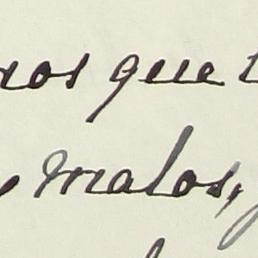 que
malos,